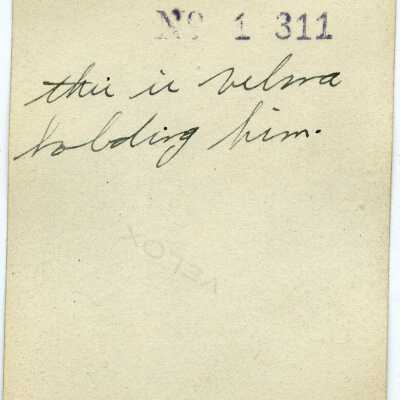 Nº 1 311
this is velma
holding him.
VELOX